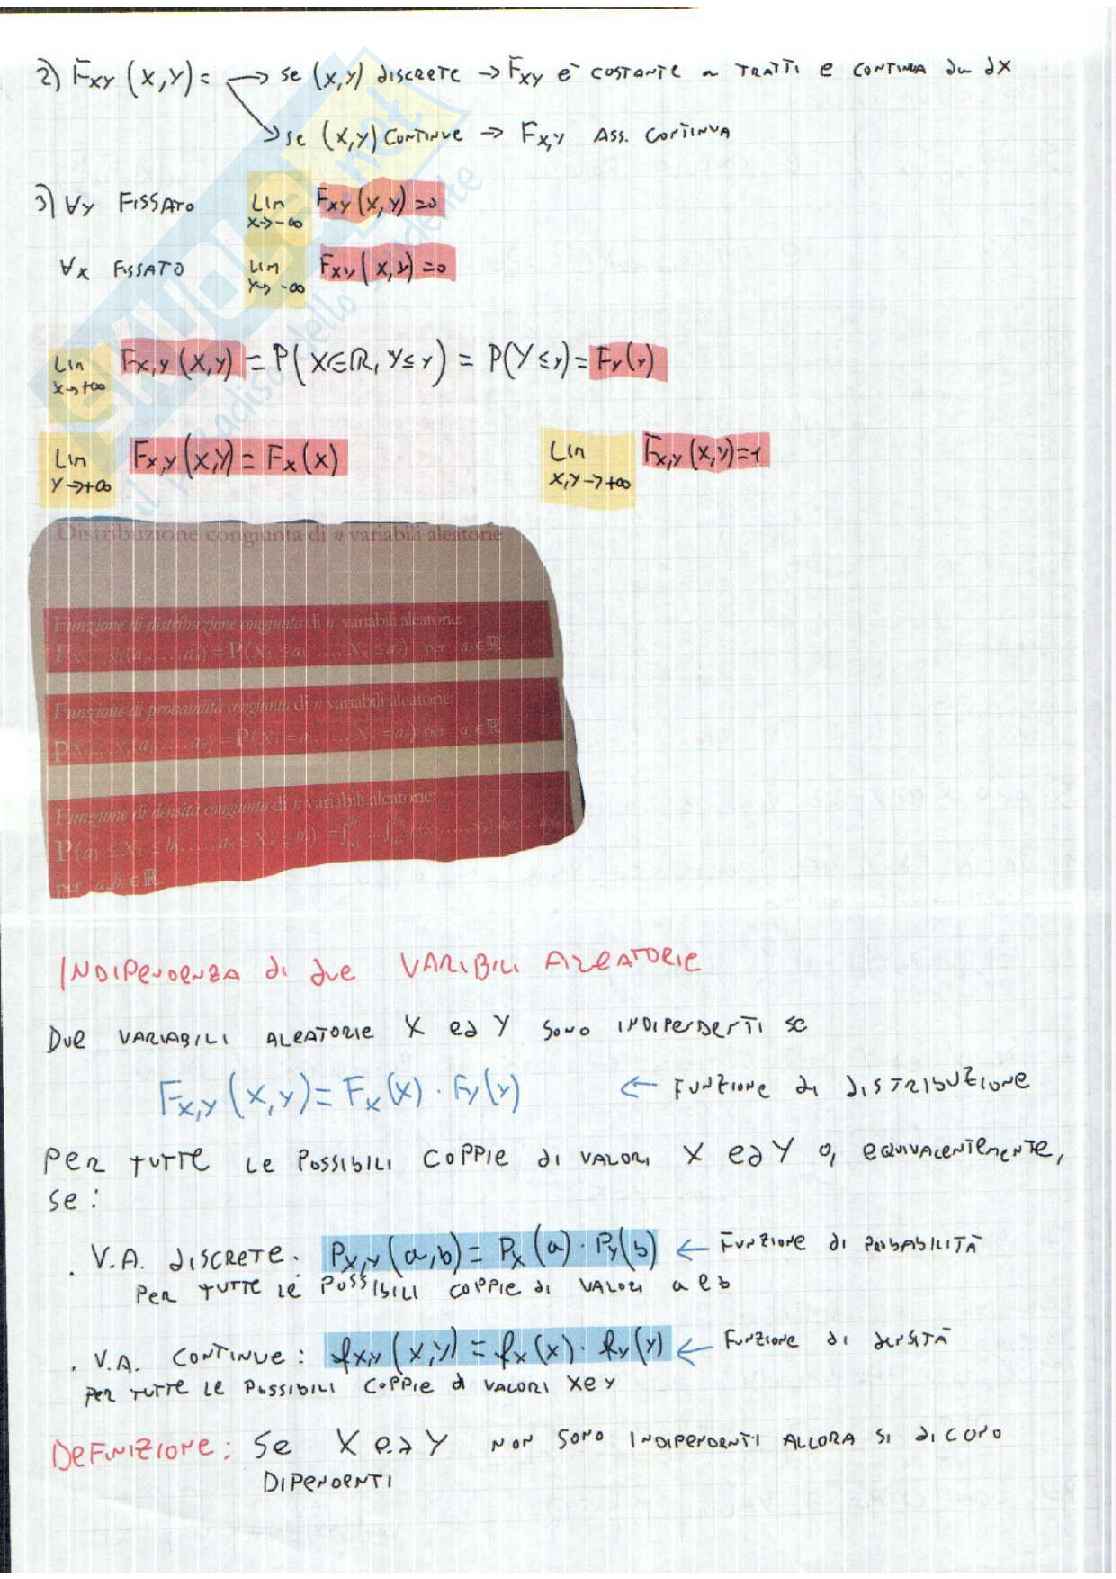 2) F_XY (X,Y) = → se (X,Y) DISCRETE → F_XY è COSTANTE A TRATTI E CONTINUA DA DX
→ se (X,Y) CONTINUE → F_X,Y ASS. CONTINUA
3) ∀y FISSATO Lim x→-∞ F_XY (X,Y) = 0
∀x FISSATO Lim y→-∞ F_XY (X,Y) = 0
Lim x→+∞ F_X,Y (X,Y) = P(X∈ℝ, Y≤y) = P(Y≤y) = F_Y(y)
Lim y→+∞ F_X,Y (X,Y) = F_X(X) Lim x,y→+∞ F_X,Y (X,Y) = 1
Distribuzione congiunta di n variabili aleatorie
Funzione di distribuzione congiunta di n variabili aleatorie:
Funzione di probabilità congiunta di n variabili aleatorie:
Funzione di densità congiunta di n variabili aleatorie:
INDIPENDENZA di due VARIBILI ALEATORIE
DUE VARIABILI ALEATORIE X ed Y SONO INDIPENDENTI se
F_X,Y (X,Y) = F_X(X) · F_Y(Y) ← FUNZIONE di DISTRIBUZIONE
PER TUTTE LE POSSIBILI COPPIE di VALORI X ed Y o, EQUIVALENTEMENTE,
se:
. V.A. DISCRETE. P_X,Y (a,b) = P_X(a) · P_Y(b) ← FUNZIONE di PROBABILITÀ
PER TUTTE LE POSSIBILI COPPIE di VALORI a e b
. V.A. CONTINUE: f_X,Y (X,Y) = f_X(X) · f_Y(Y) ← FUNZIONE di DENSITÀ
PER TUTTE LE POSSIBILI COPPIE di VALORI X e Y
DEFINIZIONE: Se X ed Y NON SONO INDIPENDENTI ALLORA SI DICONO
DIPENDENTI